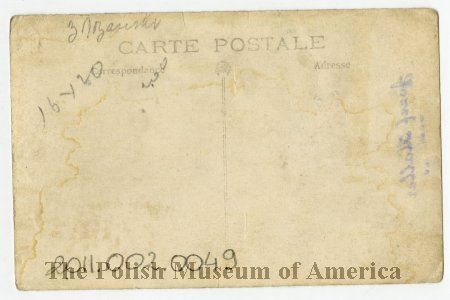 CARTE POSTALE
Correspondance
Adresse
16 x 20
2011.003.0049
The Polish Museum of America